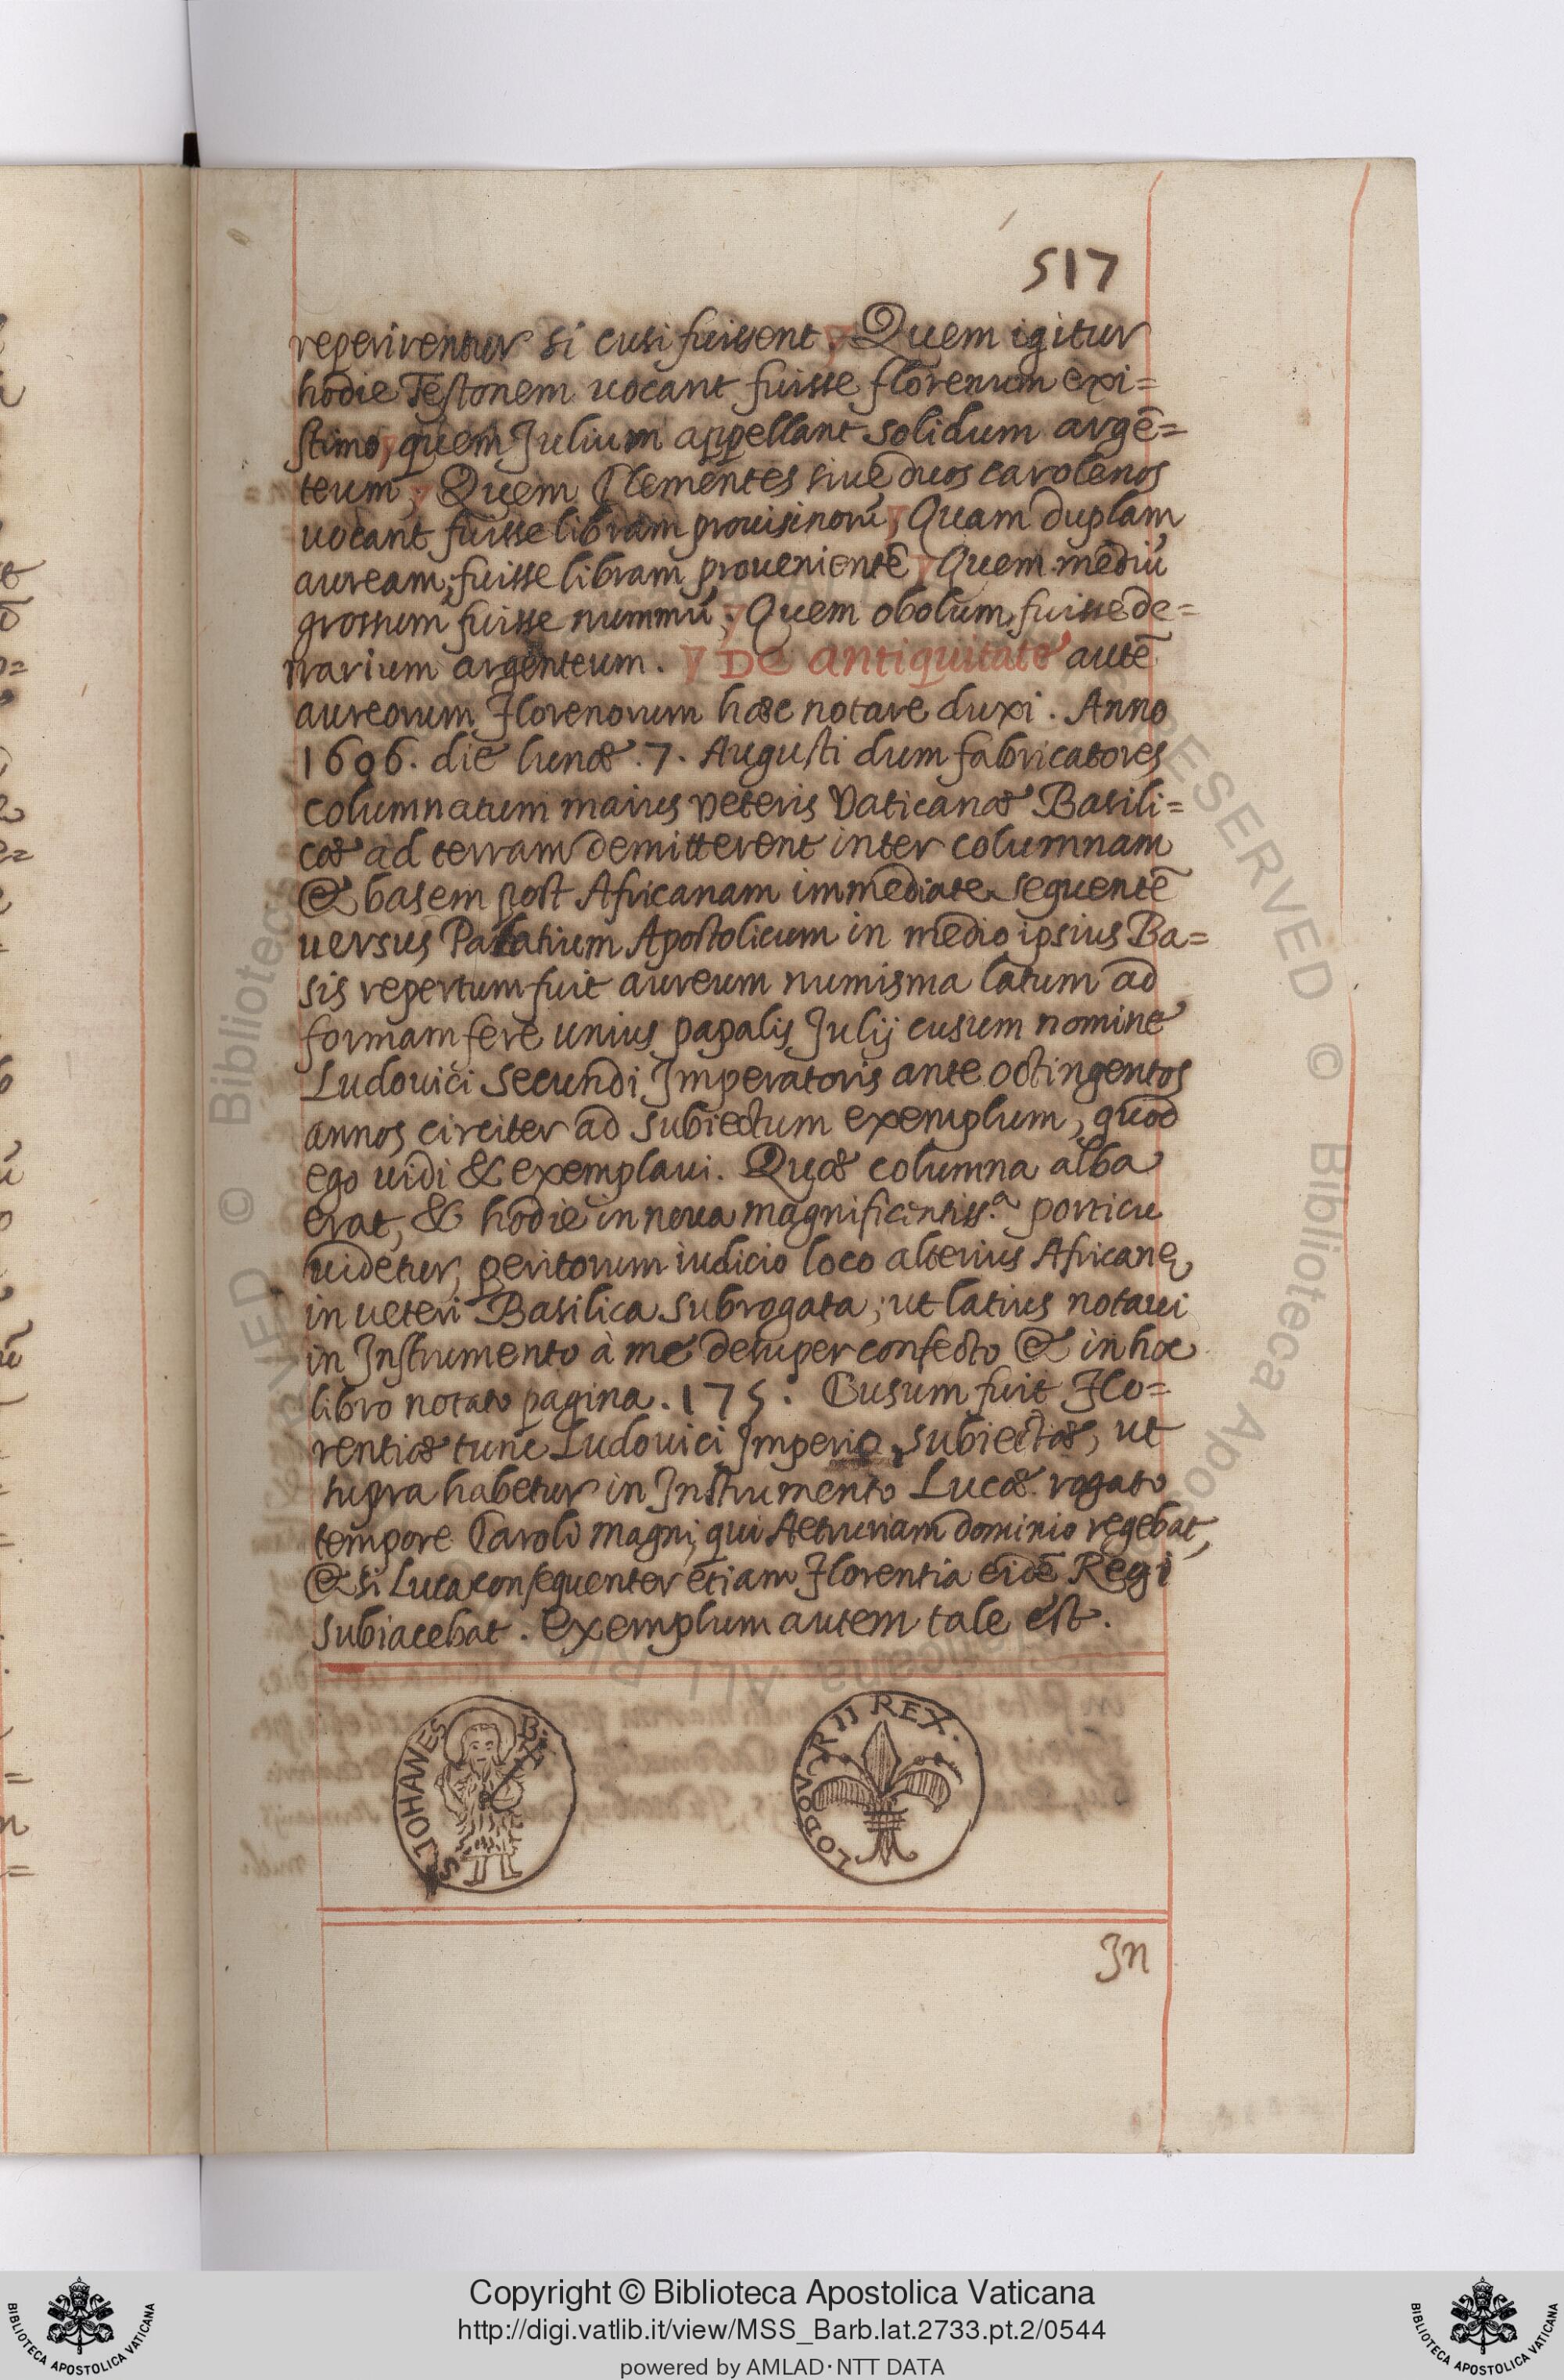 517
reperirentur si cusi fuissent, Quem igitur
hodie Testonem uocant fuisse florenum exi=
stimo, quem Julium appellant solidum argē=
teum, Quem Clementes siue duos carolenos
uocant fuisse libram prouisinorū, Quam duplam
auream, fuisse libram prouenientē, Quem mediū
grossum fuisse nummū, Quem obolum, fuisse de=
narium argenteum. De antiquitate autē
aureorum Florenorum hæc notare duxi. Anno
1606. die lunæ .7. Augusti dum fabricatores
columnatum maius veteris Vaticanæ Basili=
cæ ad terram demitterent inter columnam
& basem post Africanam immediate sequentē
uersus Palatium Apostolicum in medio ipsius Ba=
sis repertum fuit aureum numisma latum ad
formam fere unius papalis Julij cusum nomine
Ludouici secundi Imperatoris ante octingentos
annos circiter ad subiectum exemplum, quod
ego uidi & exemplaui. Quæ columna alba
erat, & hodie in noua magnificentiss.a porticu
uidetur, peritorum iudicio loco alterius Africanę
in ueteri Basilica subrogata, ut latius notaui
in Instrumento à me desuper confecto & in hoc
libro notato pagina .175. Cusum fuit Flo=
rentiæ tunc Ludouici Imperio subiectæ, ut
supra habetur in Instrumento Lucæ rogato
tempore Caroli magni, qui Aetruriam dominio regebat,
& si Luca consequenter etiam Florentia eidē Regi
subiacebat. Exemplum autem tale est.
S JOHANES B.
LODOVC RII REX.
In
Copyright © Biblioteca Apostolica Vaticana
http://digi.vatlib.it/view/MSS_Barb.lat.2733.pt.2/0544
powered by AMLAD·NTT DATA
BIBLIOTECA APOSTOLICA VATICANA
BIBLIOTECA APOSTOLICA VATICANA